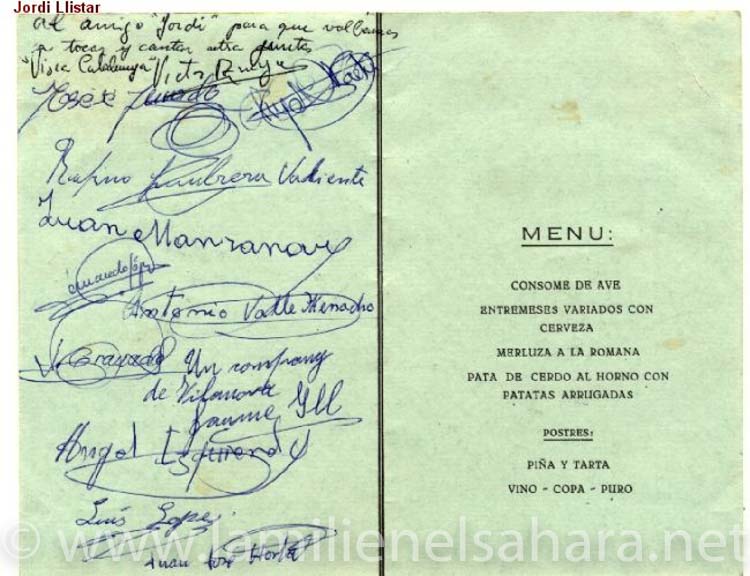 Jordi Llistar
al amigo "Jordi" para que volbamos
a tocar y cantar otra juntos
"Visca Catalunya" Victor
José
Rufino Cumbrera Valiente
Juan Manzano
Antonio Valle Menacho
J. Granado
Un company
de Vilanova
Jaume Gil
Angel Izquierdo
Luis Lopez
Juan José Horta
MENU:
CONSOME DE AVE
ENTREMESES VARIADOS CON
CERVEZA
MERLUZA A LA ROMANA
PATA DE CERDO AL HORNO CON
PATATAS ARRUGADAS
POSTRES:
PIÑA Y TARTA
VINO - COPA - PURO
© www.lamilienelsahara.net